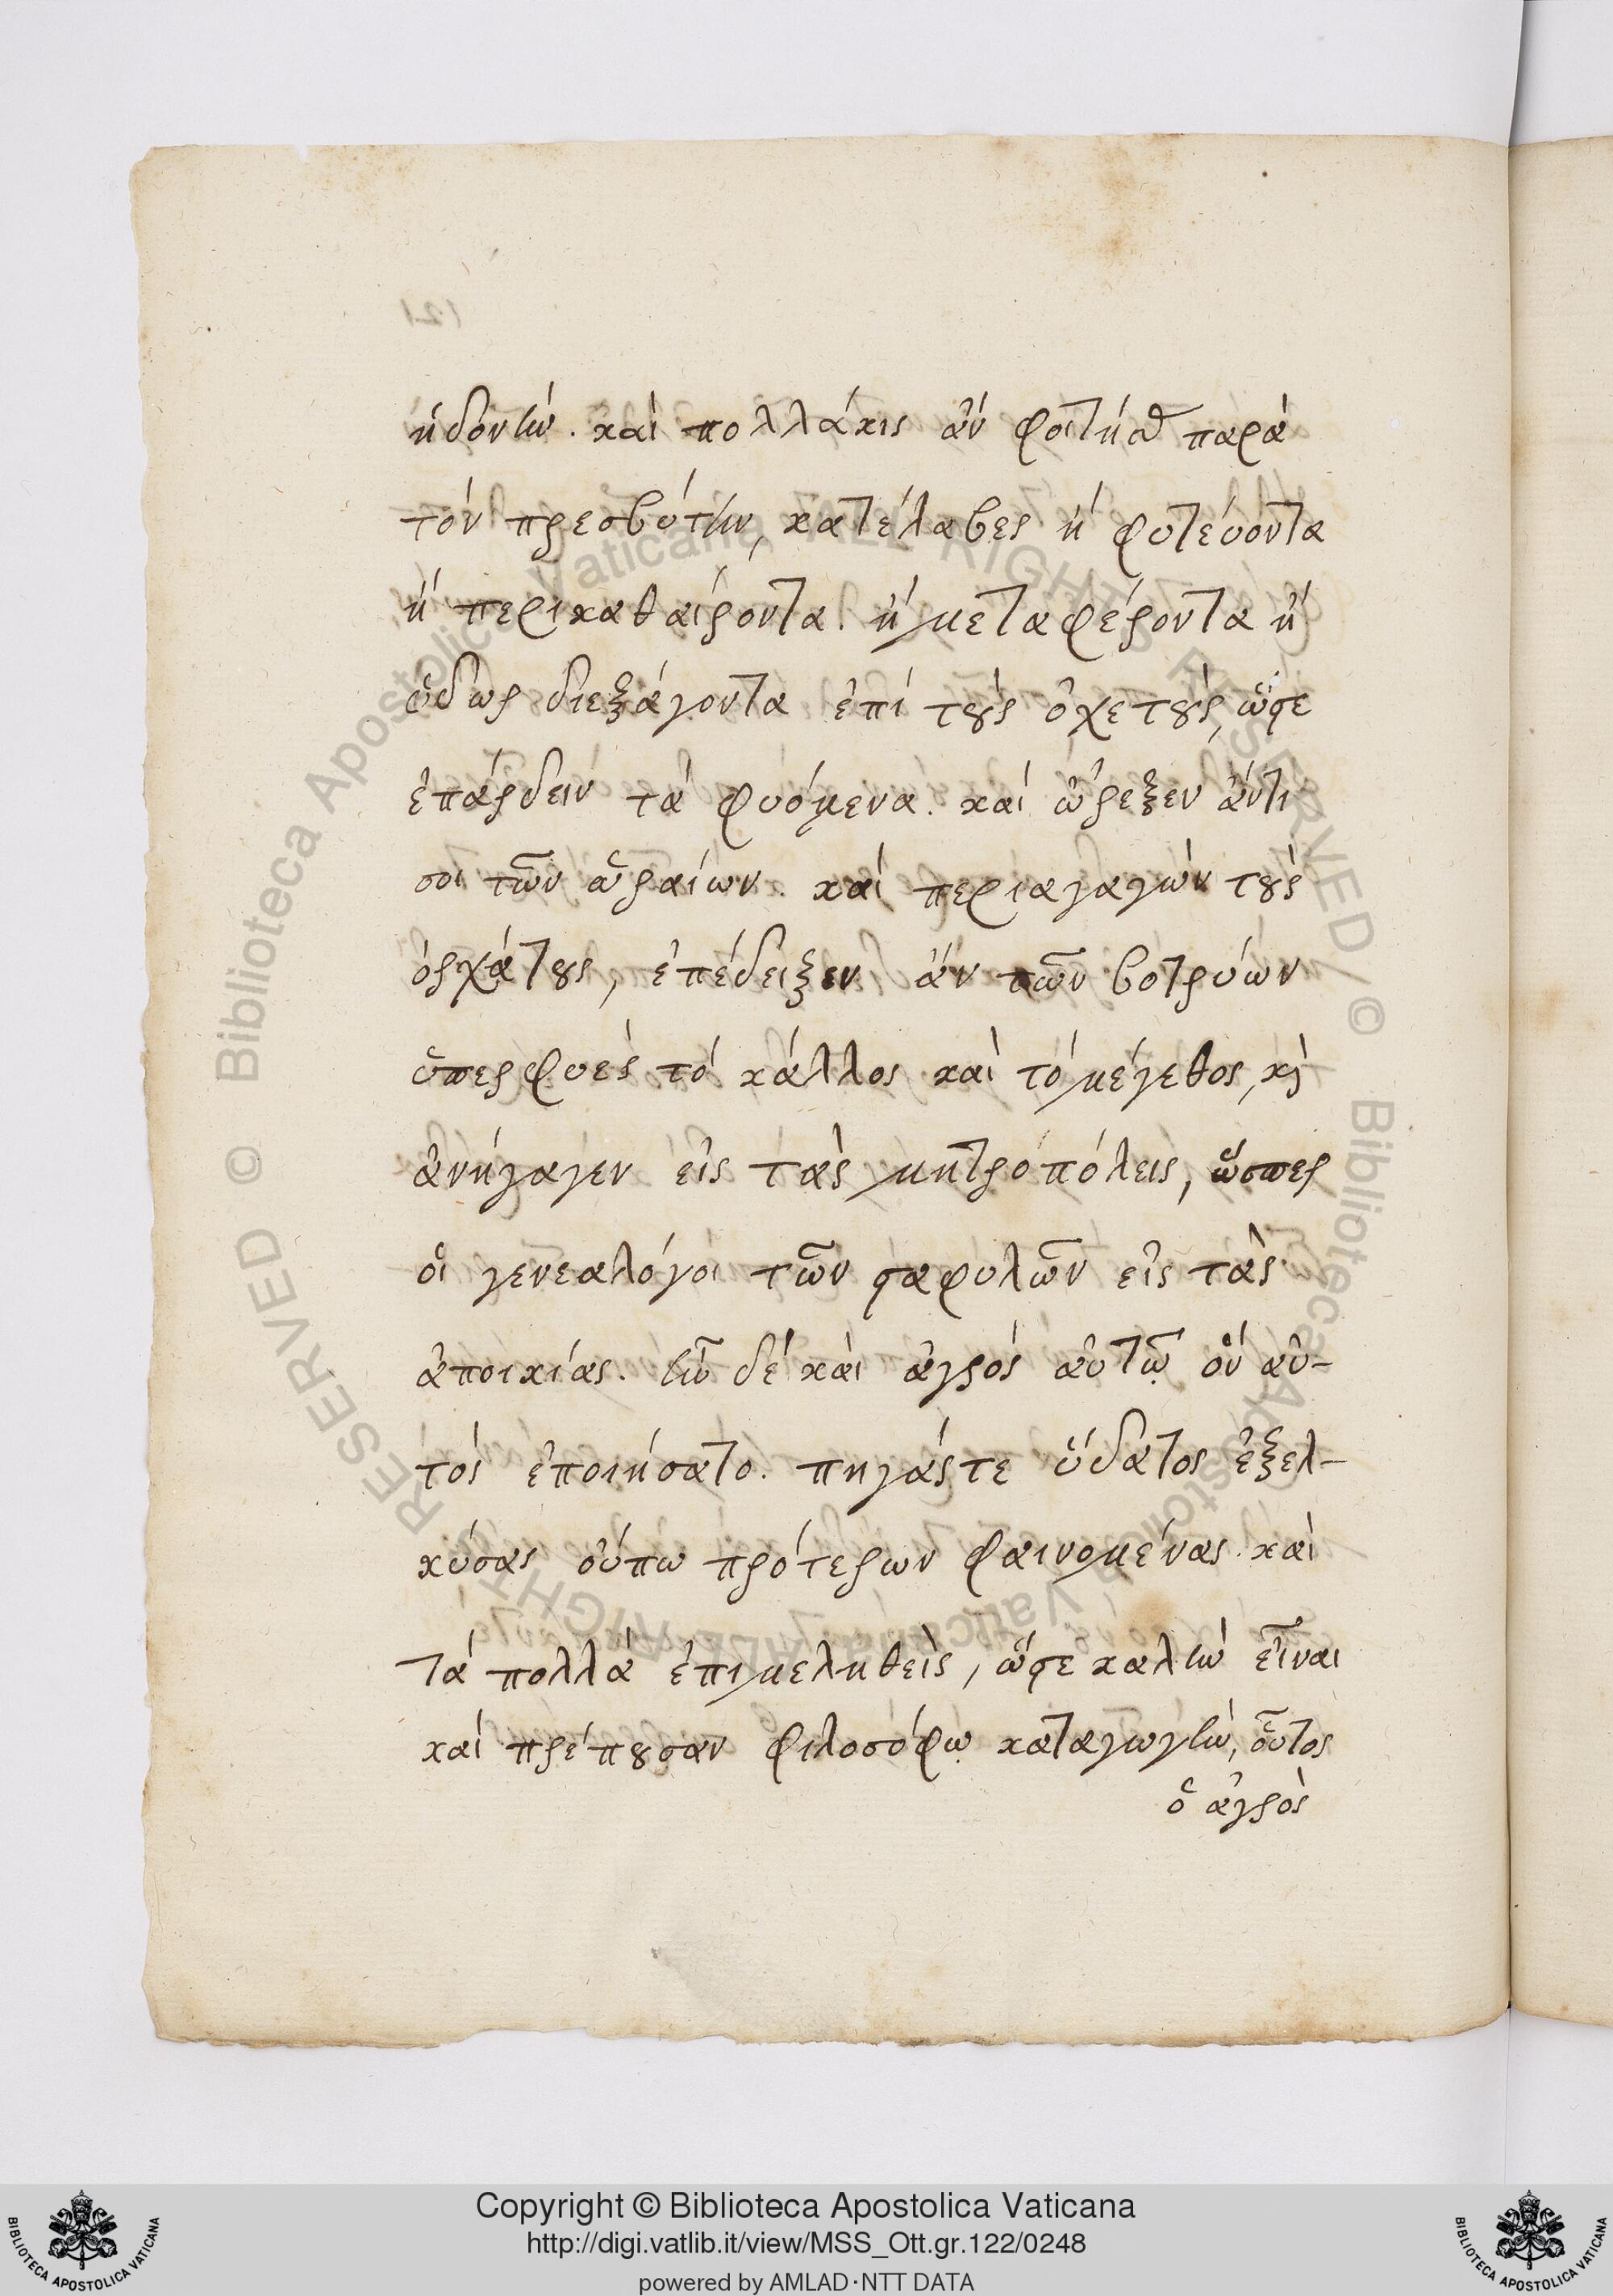 ἡδονὴν. καὶ πολλάκις ἂν φοιτήσας παρὰ
τὸν πρεσβύτην, κατέλαβες ἢ φυτεύοντα
ἢ περικαθαίροντα. ἢ μεταφέροντα ἢ
ὕδωρ διεξάγοντα ἐπὶ τοὺς ὀχετοὺς, ὥστε
ἐπάρδειν τὰ φυόμενα. καὶ ὤρεξεν ἄν τι
σοι τῶν ὡραίων. καὶ περιαγαγὼν τοὺς
ὀρχάτους, ἐπέδειξεν ἂν τῶν βοτρύων
ὑπερφυὲς τὸ κάλλος καὶ τὸ μέγεθος, καὶ
ἀνήγαγεν εἰς τὰς μητροπόλεις, ὥσπερ
οἱ γενεαλόγοι τῶν σταφυλῶν εἰς τὰς
ἀποικίας. ἦν δὲ καὶ ἀγρὸς αὐτῷ ὃν αὐ-
τὸς ἐποιήσατο. πηγάς τε ὕδατος ἐξελ-
κύσας οὔπω πρότερων φαινομένας. καὶ
τὰ πολλὰ ἐπιμεληθεὶς, ὥστε καλὴν εἶναι
καὶ πρέπουσαν φιλοσόφῳ καταγωγὴν, οὗτος
ὁ ἀγρὸς
121
© Biblioteca Apostolica Vaticana / ALL RIGHTS RESERVED / © Biblioteca Apostolica Vaticana / ALL RIGHTS RESERVED
Copyright © Biblioteca Apostolica Vaticana
http://digi.vatlib.it/view/MSS_Ott.gr.122/0248
powered by AMLAD·NTT DATA
BIBLIOTECA APOSTOLICA VATICANA
BIBLIOTECA APOSTOLICA VATICANA